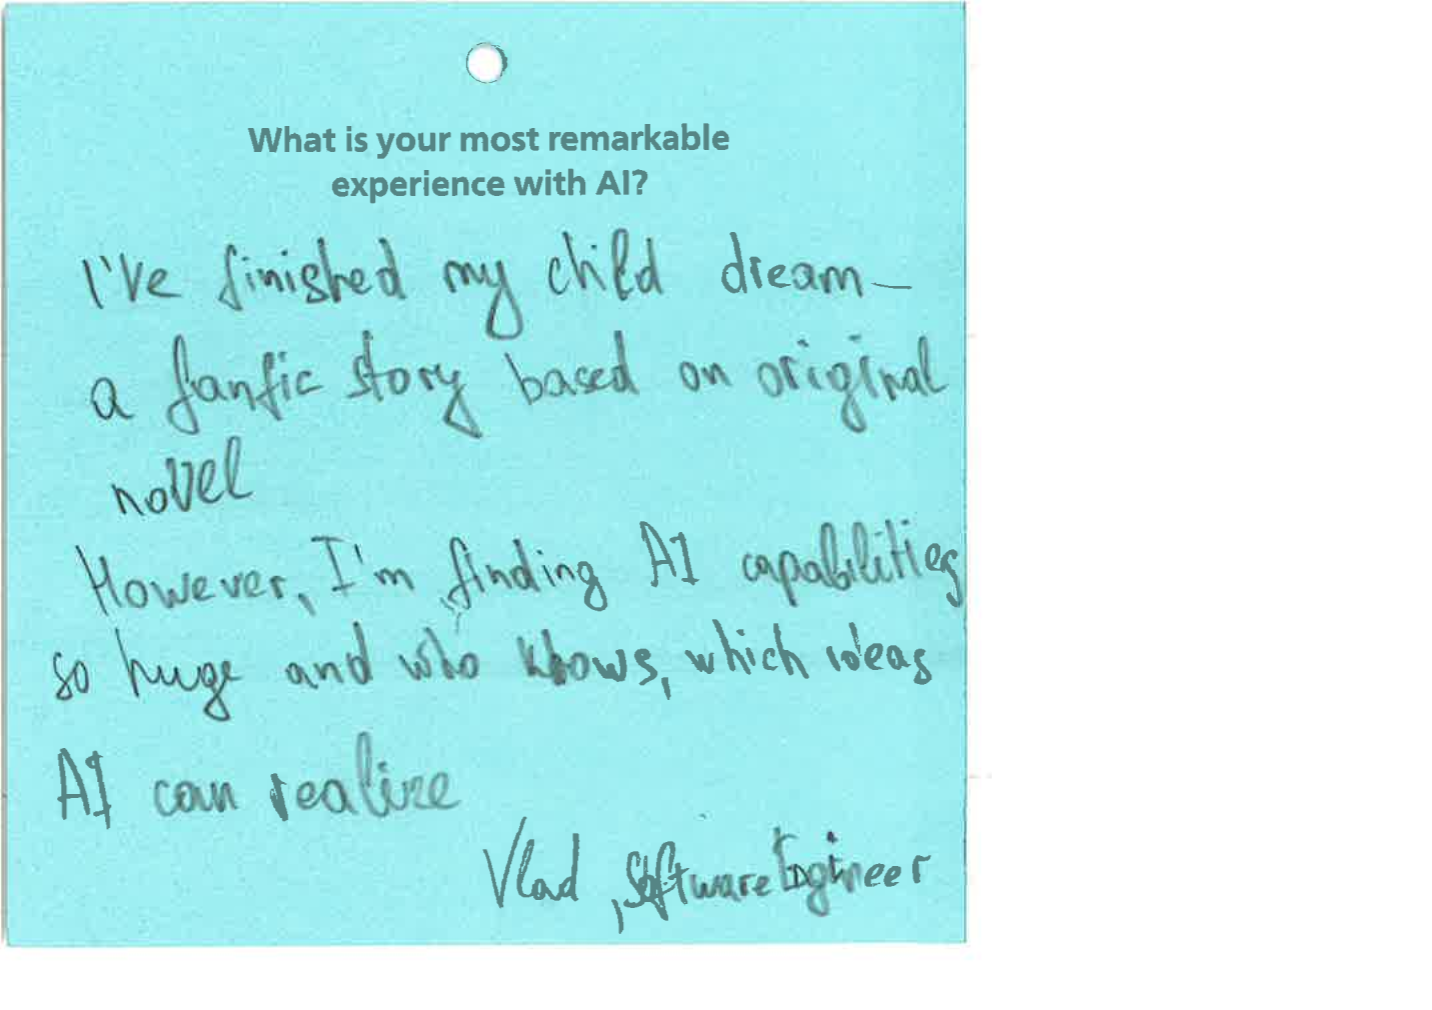 What is your most remarkable
experience with AI?
I've finished my child dream—
a fanfic story based on original
novel
However, I'm finding AI capabilities
so huge and who knows, which ideas
AI can realize
Vlad, Software Engineer